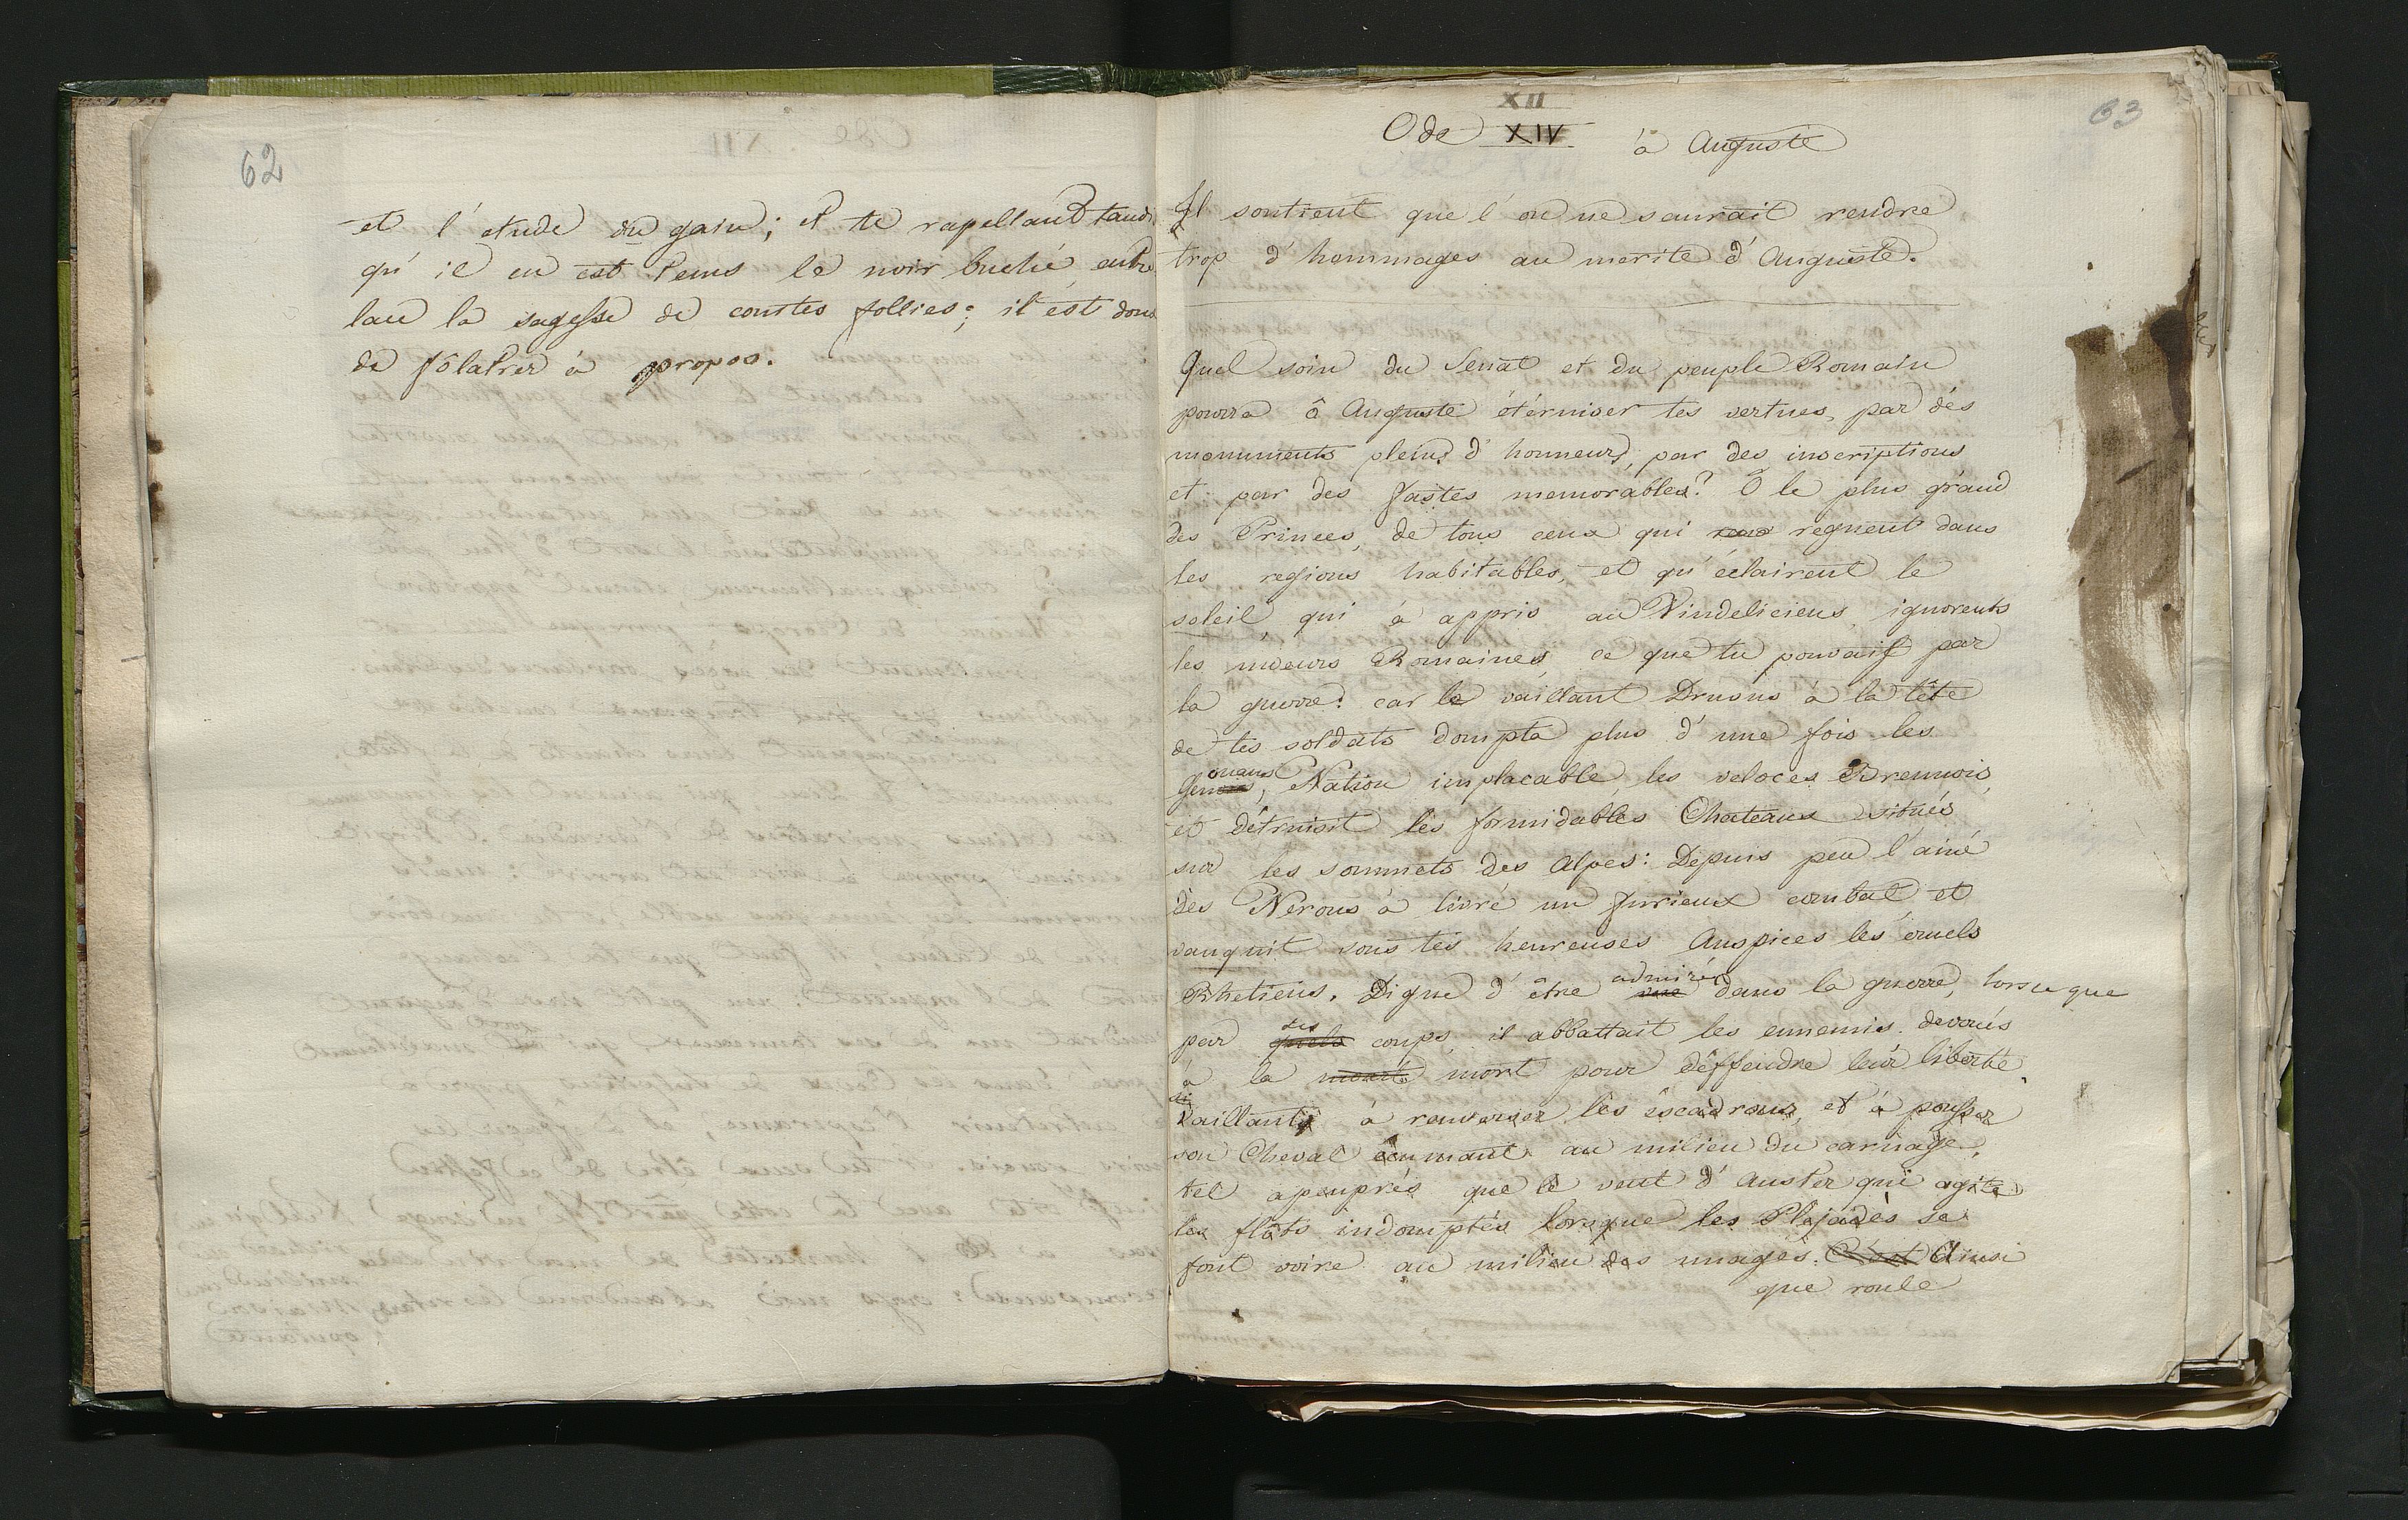 62
et l'etude du gain; et te rapellant tandi
qu'il en est tems le noir buché, entre
lace la sagesse de courtes follies; il est doux
de folatrer à propos.
63
XII
Ode XIV à Auguste
Il soutient que l'on ne saurait rendre
trop d'hommages au merite d'Auguste.
Quel soin du Senat et du peuple Romain
pourra ô Auguste éterniser tes vertues, par dés
monuments pleins d'honneurs, par des inscriptions
et par des fastes memorables? Ô le plus grand
des Princes, de tous ceux qui regnent dans
les regions habitables, et qu'éclairent le
soleil, qui à appris au Vindeliciens, ignorents
les mœurs Romaines ce que tu pouvais par
la guerre! car le vaillant Drusus à la tête
de tes soldats dompta plus d'une fois les
onans
Genois, Nation implacable, les veloces Brennois,
et détruisit les formidables Chateaux situés
sur les sommets des Alpes: Depuis peu l'ainé
dès Nerons à livré un furieux combat, et
vanquit sous tes heureuses Auspices les cruels
Rhetiens. Digne d'être admiré dans la guerre, lorsque
ses
par quels coups il abbattait les ennemis devoués
à la mort pour déffendre leur liberté,
si
Vaillant à renverser les escadrons, et à pousser
son Cheval écumant au milieu du carnage,
tel apeuprés que le vent d'Auster qui agite
les flots indomptés lorsque les Plejades se
font voire au milieu des nuages. C'est Ainsi
que roule